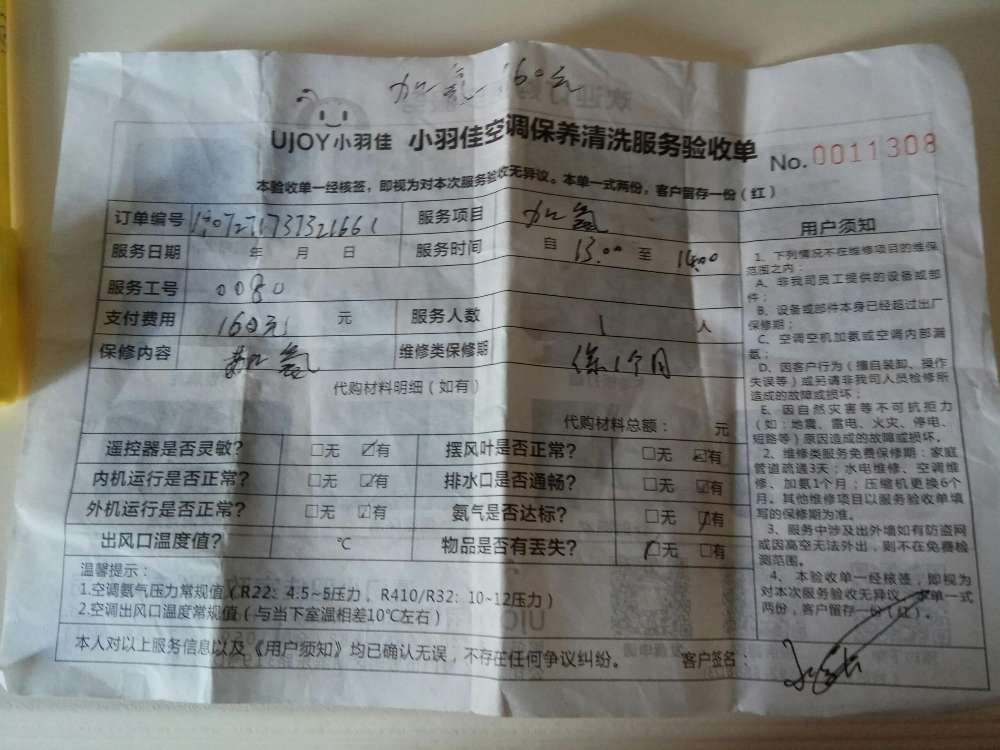 加氨 160元
UJOY小羽佳 小羽佳空调保养清洗服务验收单 No.0011308
本验收单一经核签，即视为对本次服务验收无异议。本单一式两份，客户留存一份（红）
订单编号 服务项目 加氨
服务日期 年 月 日 服务时间 自 13:00 至 14:00
服务工号 0080
支付费用 160元 元 服务人数 1 人
保修内容 加氨 维修类保修期 保1个月
代购材料明细（如有）
代购材料总额： 元
遥控器是否灵敏？ □无 ☑有 摆风叶是否正常？ □无 ☑有
内机运行是否正常？ □无 ☑有 排水口是否通畅？ □无 ☑有
外机运行是否正常？ □无 ☑有 氨气是否达标？ □无 ☑有
出风口温度值？ ℃ 物品是否有丢失？ ☑无 □有
温馨提示：
1.空调氨气压力常规值（R22：4.5~5压力、R410/R32：10~12压力）
2.空调出风口温度常规值（与当下室温相差10℃左右）
本人对以上服务信息以及《用户须知》均已确认无误，不存在任何争议纠纷。 客户签名：
用户须知
1、下列情况不在维修项目的维保
范围之内：
A、非我司员工提供的设备或部
件；
B、设备或部件本身已经超过出厂
保修期；
C、空调空机加氨或空调内部漏
氨；
D、因客户行为（擅自装卸、操作
失误等）或另请非我司人员检修所
造成的故障或损坏；
E、因自然灾害等不可抗拒力
（如：地震、雷电、火灾、停电、
短路等）原因造成的故障或损坏。
2、维修类服务免费保修期：家庭
管道疏通3天；水电维修、空调维
修、加氨1个月；压缩机更换6个
月。其他维修项目以服务验收单填
写的保修期为准。
3、服务中涉及出外墙如有防盗网
或因高空无法外出，则不在免费检
测范围。
4、本验收单一经核签，即视为
对本次服务验收无异议。本单一式
两份，客户留存一份（红）。